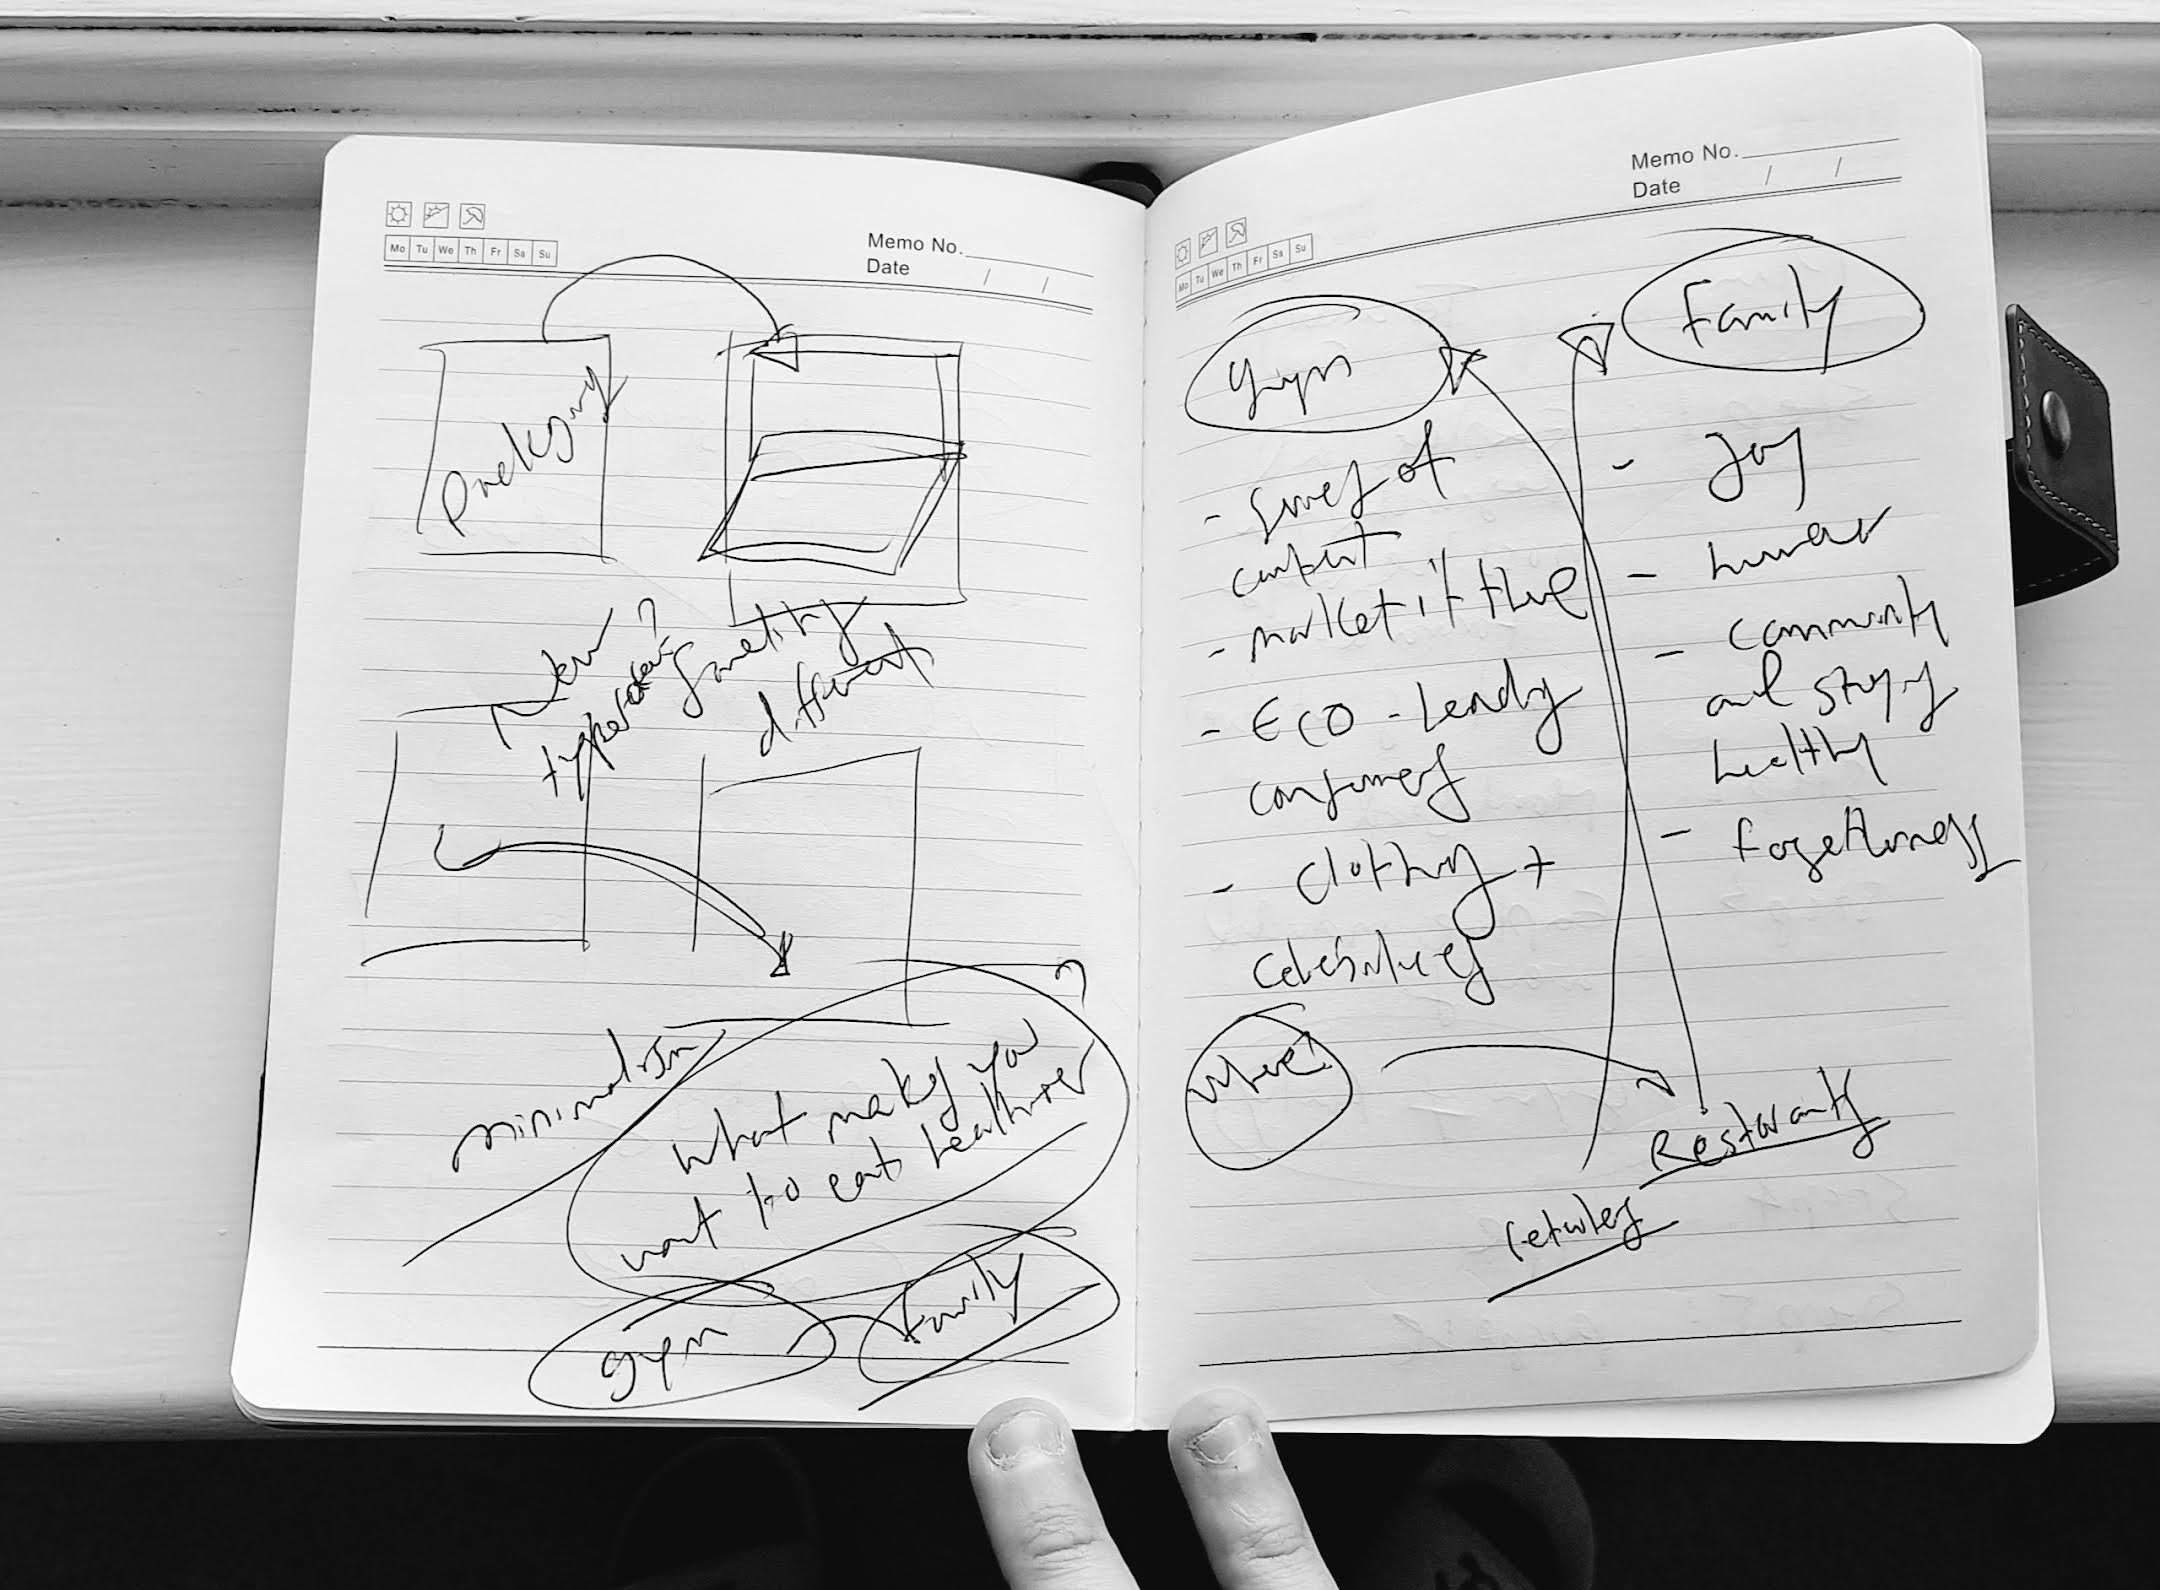 Mo Tu We Th Fr Sa Su
Memo No.
Date / /
Packging
New
something
different
minimalism
what makes you
want to eat healthier
?
gym
Family
Memo No.
Date / /
Mo Tu We Th Fr Sa Su
gym
- of
content
- market it there
- Eco - Leady
consumers
- Clothing +
Celebrities
where?
Family
- Joy
- humor
- community
and staying
healthy
- togetherness
Restaurants
retailers